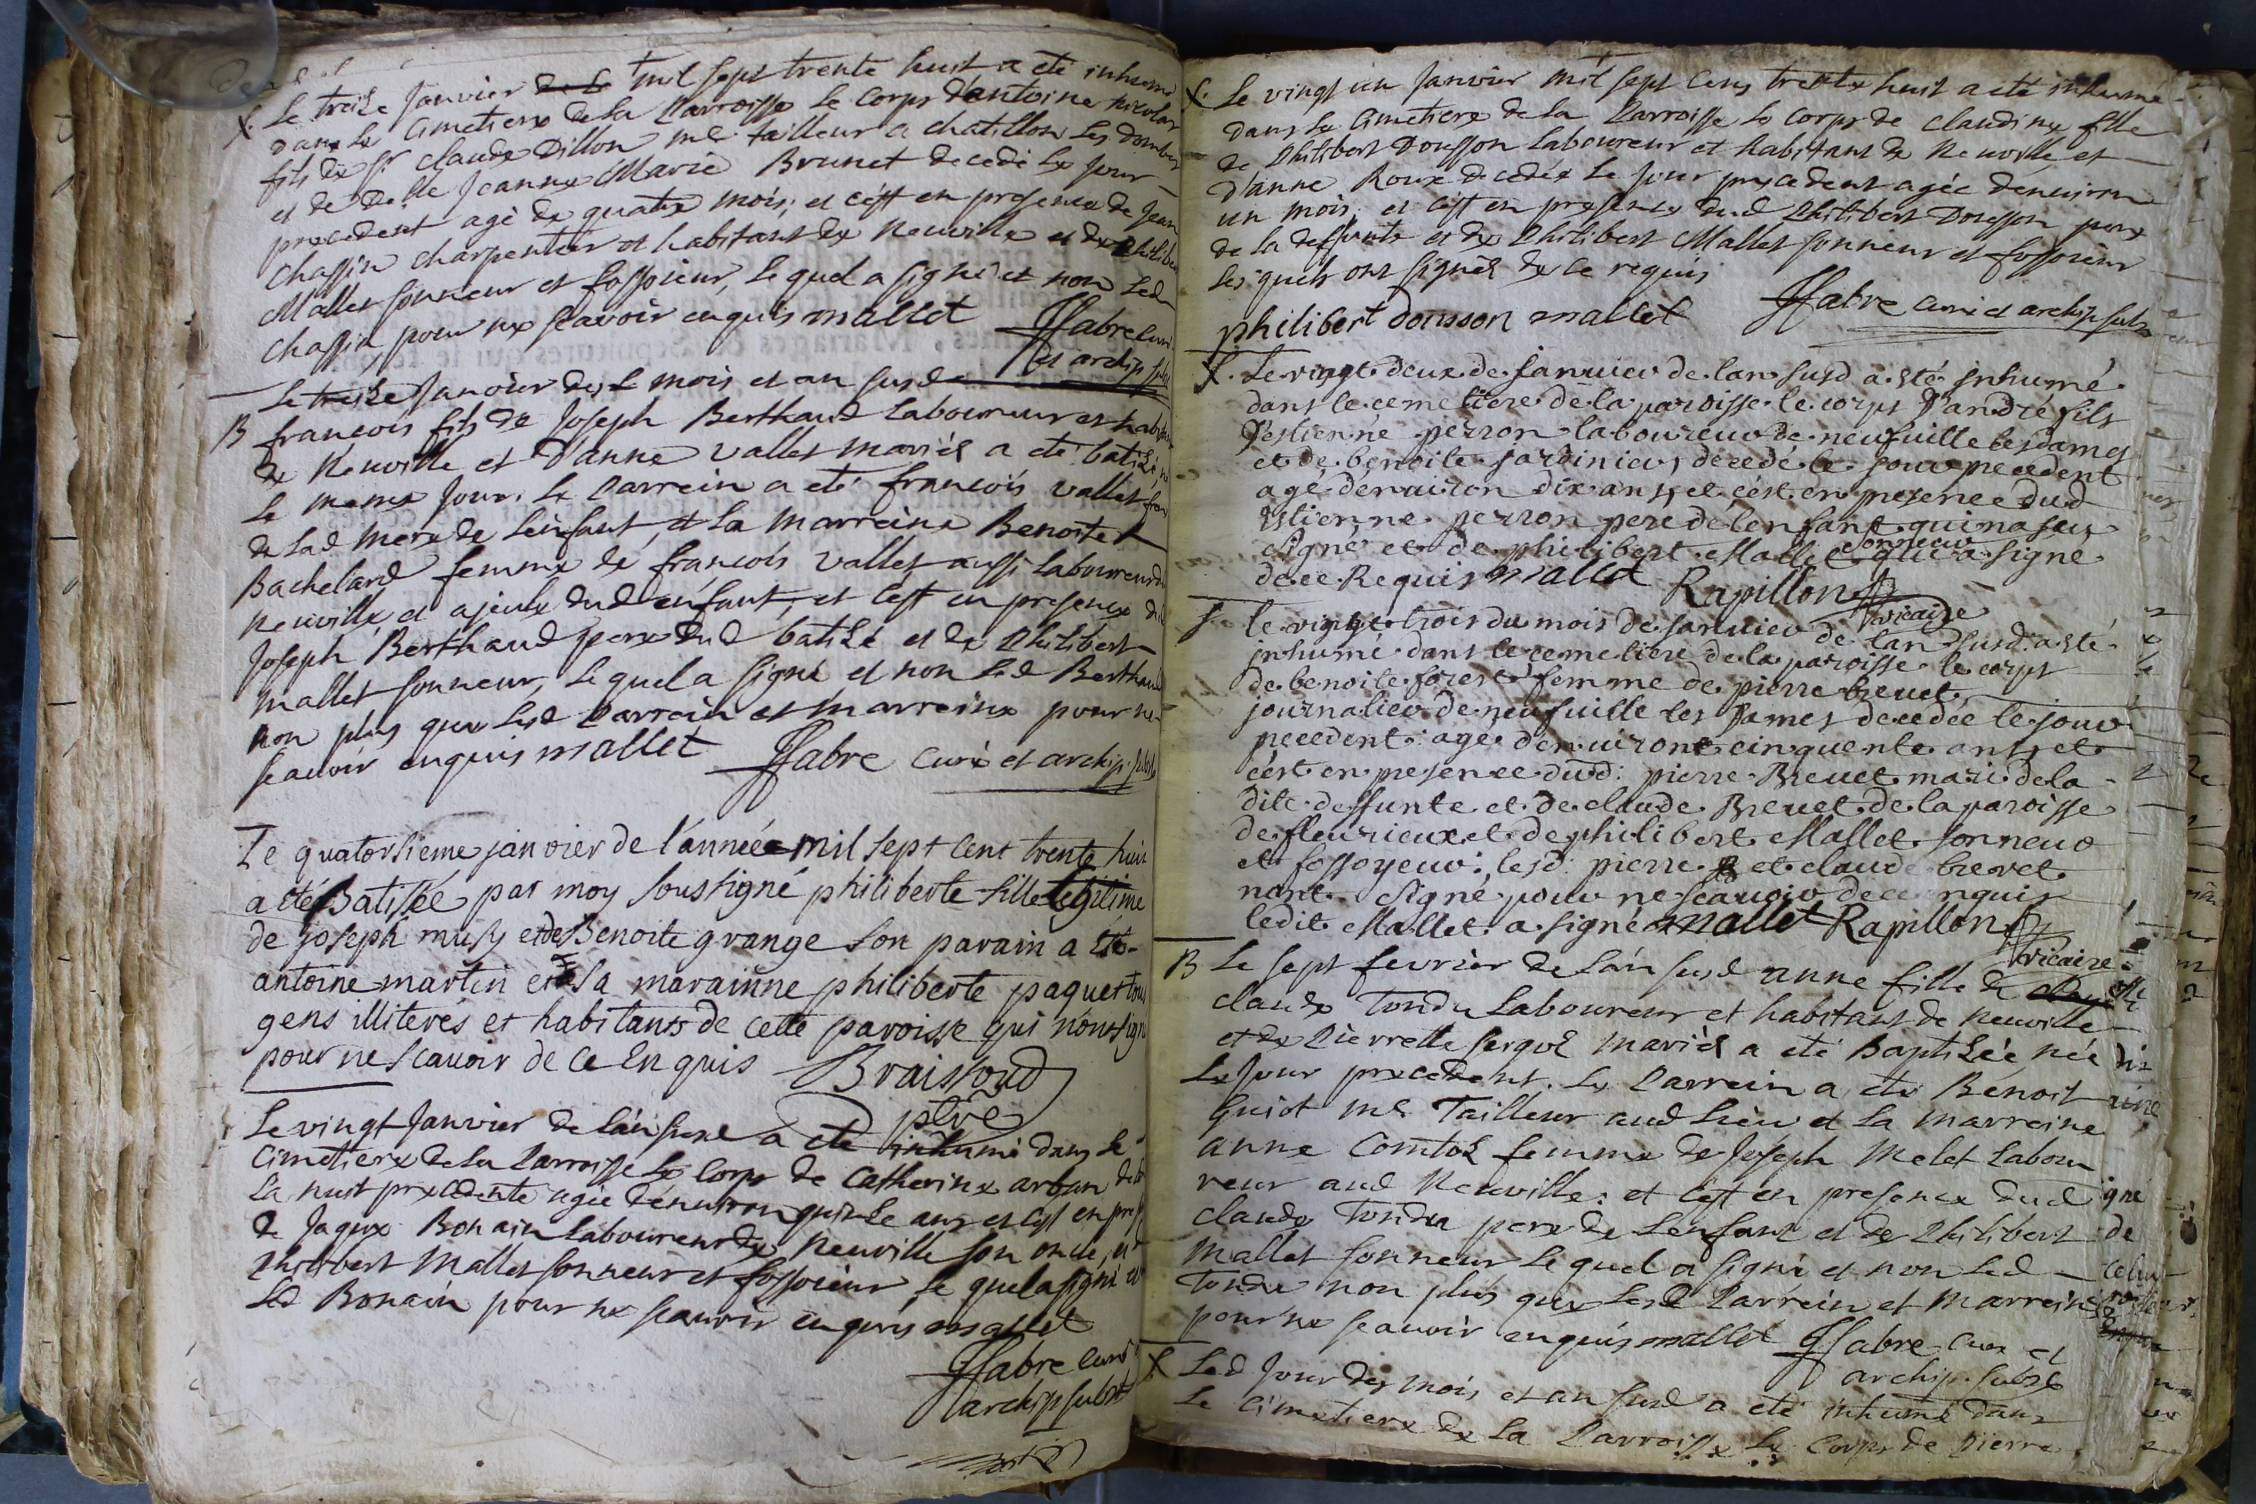 X. Le treize Janvier de l mil sept trente huit a eté inhumé
dans le Cimetiere de la Parroisse le Corps d'antoine nicolas
fils de Sr claude Dillon me tailleur a chatillon les dombes
et de Delle Jeanne Marie Brunet decedé le jour
precedent agé de quatre mois, et c'est en presence de Jean
chassin charpentier et habitant de Neuville et de Philibert
Mallet sonneur et fossoieur, le quel a signé et non led
chassin pour ne scavoir enquis mallet ffabre curé
et archip. subst
Le treize Janvier des d mois et an susd
B francois fils de Joseph Berthaud Laboureur et habitant
de Neuville et d'anne vallet mariés a eté batisé, né
le meme jour. Le Parrein a eté francois vallet frere
de lad mere de l'enfant, et la marreine Benoite
Bachelard femme de francois vallet aussi laboureur de
Neuville et ajeule dud enfant, et c'est en presence dud
Joseph Berthaud pere dud batisé et de Philibert
mallet sonneur, le quel a signé et non led Berthaud
non plus que lesd Parrein et marreine pour ne
scavoir enquis mallet ffabre curé et archip. subst
Le quatorsieme janvier de l'année mil sept cent trente huit
a eté Batisée par moy soussigné philiberte fille legitime
de joseph musy et de Benoite grange son parain a eté
antoine martin et sa marainne philiberte paquet tous
gens illiterés et habitants de cette paroisse qui n'ont signé
pour ne scavoir de ce Enquis Braissoud
ptre
Le vingt Janvier de l'an susd a eté inhumé dans le
Cimetiere de la Parroisse le Corps de Catherine arban
la nuit precedente agée d'environ quinze ans et c'est en
de Jaque Bonain Laboureur de Neuville son oncle, et
Philibert Mallet sonneur et fossoieur, le quel a signé et
led Bonain pour ne scavoir enquis mallet
ffabre curé
archip subst
X. Le vingt un Janvier mil sept cens trente huit a eté inhumé
dans le Cimetiere de la Parroisse le Corps de claudine fille
de Philibert Dousson Laboureur et habitant de Neuville et
d'anne Roux decedée le jour precedent agée d'environ
un mois, et c'est en presence dud Philibert Dousson pere
de la deffunte et de Philibert Mallet sonneur et fossoieur
les quels ont signés de ce requis
philibert dousson mallet ffabre curé et archip. subst
X. Le vingt deux de januier de lan susd a esté inhumé
dans le cemetiere de la paroisse le corps d'andré fils
d'estienne perron laboureur de neufuille les dames
et de benoite jardinier, decedé le jour precedent
agé denuiron dix ans, et c'est en presence dud
estienne perron pere de lenfant qui na sceu
signé et de philibert Mallet sonneur qui a signé
de ce Requis mallet Rapillon
vicaire
le vingt trois du mois de januier de lan susd a esté
inhumé dans le cemetiere de la paroisse le corps
de benoite forest femme de pierre breuet
journalier de neufuille les dames decedée le jour
precedent agé denuiront cinquente ans, et
c'est en presence dud: pierre Breuet mari de la
dite deffunte et de claude Breuet de la paroisse
de fleurieux et de philibert Mallet sonneur
et fossoyeur: lesd: pierre et claude brevet
nont signé pour ne scauoir de ce enquis
ledit Mallet a signé mallet Rapillon
vicaire
B Le sept fevrier de l'an susd anne fille de
claude Tondu Laboureur et habitant de Neuville
et de Pierrette mariés a eté Baptisée née
le jour precedent. Le Parrein a eté Benoit
Guiot me Tailleur aud Lieu et la marreine
anne Comtos femme de Joseph Melet Labou
reur aud Neuville: et c'est en presence dud
claude Tondu pere de l'enfant et de Philibert
Mallet sonneur le quel a signé et non led
Tondu non plus que lesd Parrein et marreine
pour ne scavoir enquis mallet ffabre curé et
archip. subst
X Led jour des mois et an susd a eté inhumé dans
le Cimetiere de la Parroisse le Corps de Pierre